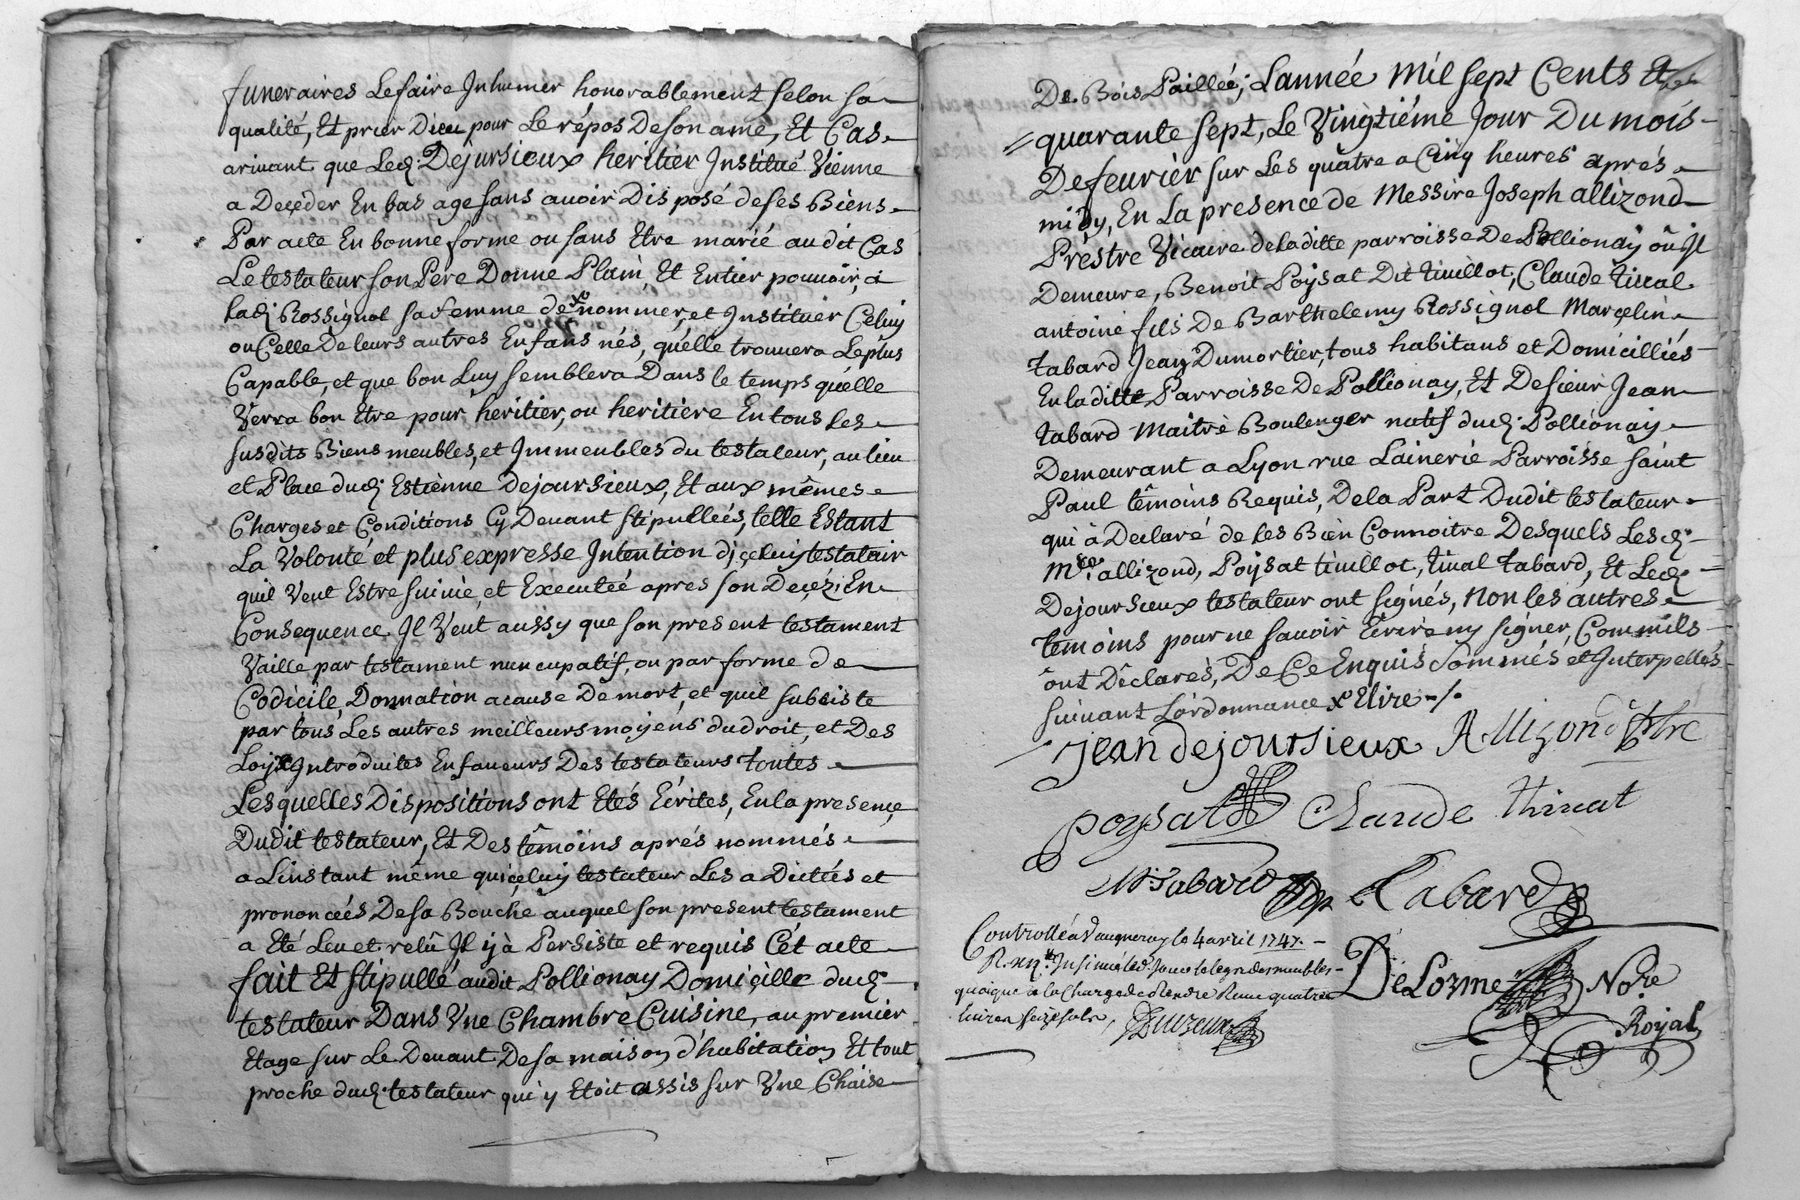 funeraires Le faire Inhumer honorablement selon sa
qualité, Et prier Dieu pour Le répos De son ame, Et Cas
arivant que Led: Dejursieux heritier Institué Vienne
a Deçéder En bas age sans auoir Disposé de ses Biens
Par acte En bonne forme ou sans Etre marié audit Cas
Le testateur son Pere Donne Plain, Et Entier pouuoir, a
Lad: Rossignol sa femme de nommer, et Instituer Celuy
ou Celle De leurs autres Enfans nés, qu'elle trouuera Le plus
Capable, et que bon Luy semblera Dans le temps qu'elle
Verra bon Etre pour heritier, ou heritiere En tous Les
susdits Biens meubles, et Immeubles du testateur, au lieu
et Place dud: Estiènne Dejoursieux, Et aux mêmes
Charges et Conditions Cy Deuant stipulleés, telle Estant
La Volonté et plus expresse Intention d'jçeluy testatair
quil Veut Estre suiuie, et Executeé apres son Deçéz; En
Consequence Il Veut aussy que son present testament
Vaille par testament nuncupatif, ou par forme de
Codicile, Donnation a cause De mort, et quil subsiste
par tous Les autres meilleurs moyens du droit, et Des
Loix Introduites En faueurs Des testateurs toutes
Lesquelles Dispositions ont Etés Ecrites, En la presençe
Dudit testateur, Et Des têmoins aprés nommés
a Linstant même quiçeluy testateur Les a Dictées et
prononceés De sa Bouche auquel son present testament
a Eté Leu et relû Il y à Persiste et requis Cét acte
fait Et stipullé audit Pollionay Domiçille dud:
testateur Dans Vne Chambre Cuisine, au premier
Etage sur Le Deuant De sa maison d'habitation Et tout
proche dud: testateur qui y Etoit assis sur Vne Chaise
De Bois Pailleé; L'année Mil sept Cents Et
quarante sept, Le Vingtiéme Jour Du mois
De feurièr sur Les quâtre a Cinq heures aprés
midy, En La presence de Messire Joseph allizond
Prèstre Vicaire de laditte parroisse De Pollionay oû Il
Demeure, Benoit Poysat Dit tiuillot, Claude tiual
antoine fils De Barthelemy Rossignol Marçelin
tabard Jean Dumortier, tous habitans et Domicilliés
En laditte Parroisse De Pollionay, Et De sieur Jean
tabard Maitre Boulenger natif dud: Pollionay
Demeurant a Lyon rue Lainerie Parroisse saint
Paul têmoins Requis, De la Part Dudit testateur
qui à Declaré de Les Bien Connoitre Desquels Lesd:
Mre allizond, Poysat tiuillot, tiual tabard, Et Led:
Dejoursieux testateur ont signés, Non les autres
temoins pour ne sauoir Ecrire ny signer, Comm'ils
ônt Dêclarés, De Ce Enquis sommés et Interpellés
suiuant Lordonnance x Elire
Jean dejoursieux Allizond ptre
poysat Claude thiuat
M tabard tabard
Controllé a Vaugneray le 4 avril 1747.
DeLorme Nore
Royal